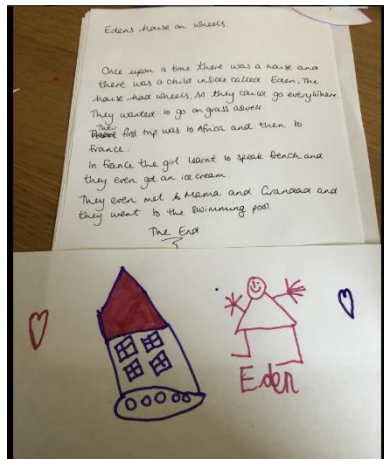 Edens house on wheels.
Once upon a time there was a house and
there was a child inside called Eden. The
house had wheels, so they could go everywhere
They wanted to go on grass aswell
Their first trip was to Africa and then to
france.
In france the girl learnt to speak french and
they even got an ice cream.
They even met Mama and Grandad and
they went to the swimming pool.
The End
Eden